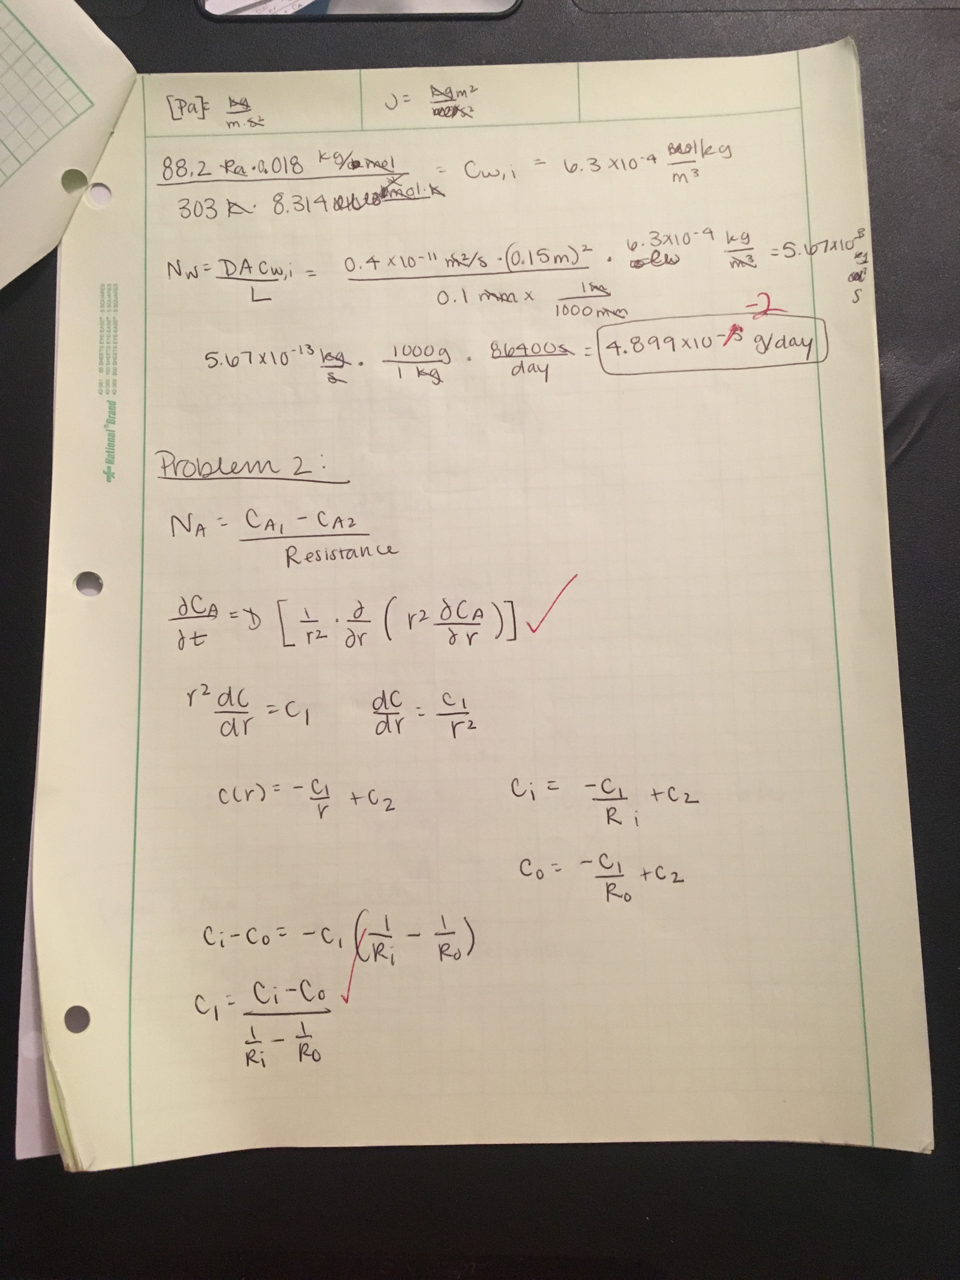 [Pa]= kg/m·s²
J = kg m²/s²
88.2 Pa·0.018 kg/mol / 303 K · 8.314 J/mol·K = Cw,i = 6.3 x10⁻⁴ kg/m³
Nw = DACw,i / L = 0.4 x 10⁻¹¹ m²/s · (0.15m)² / 0.1 mm x 1m/1000mm · 6.3x10⁻⁴ kg/m³ = 5.67x10⁻¹³ kg/s
-2
5.67 x10⁻¹³ kg/s · 1000g/1 kg · 86400s/day = 4.899x10⁻⁵ g/day
National® Brand
Problem 2:
N_A = C_A1 - C_A2 / Resistance
∂C_A/∂t = D [ 1/r² · ∂/∂r ( r² ∂C_A/∂r )]
r² dC/dr = C₁ dC/dr = C₁/r²
C(r) = -C₁/r + C₂ Ci = -C₁/Ri + C₂
Co = -C₁/Ro + C₂
Ci - Co = -C₁ (1/Ri - 1/Ro)
C₁ = Ci - Co / 1/Ri - 1/Ro